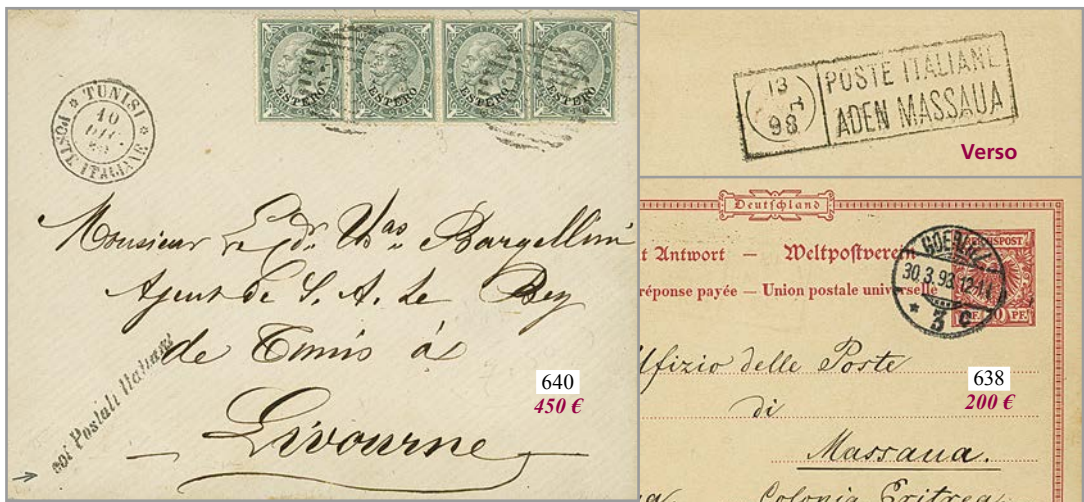 POSTE ITALIANE
ESTERO
ESTERO
ESTERO
ESTERO
TUNISI
10
DIC
POSTE ITALIANE
Monsieur
Bargellini
Agent de S. A. le Bey
de Tunis à
Livourne
Postali Italiani
640
450 €
13
98
POSTE ITALIANE
ADEN MASSAUA
Verso
Deutschland
t Antwort — Weltpostverein
réponse payée — Union postale universelle
REICHSPOST
PF. 10 PF.
GOERLITZ
30.3.98.
3 c
Ufizio delle Poste
di
Massaua.
Colonia Eritrea
638
200 €